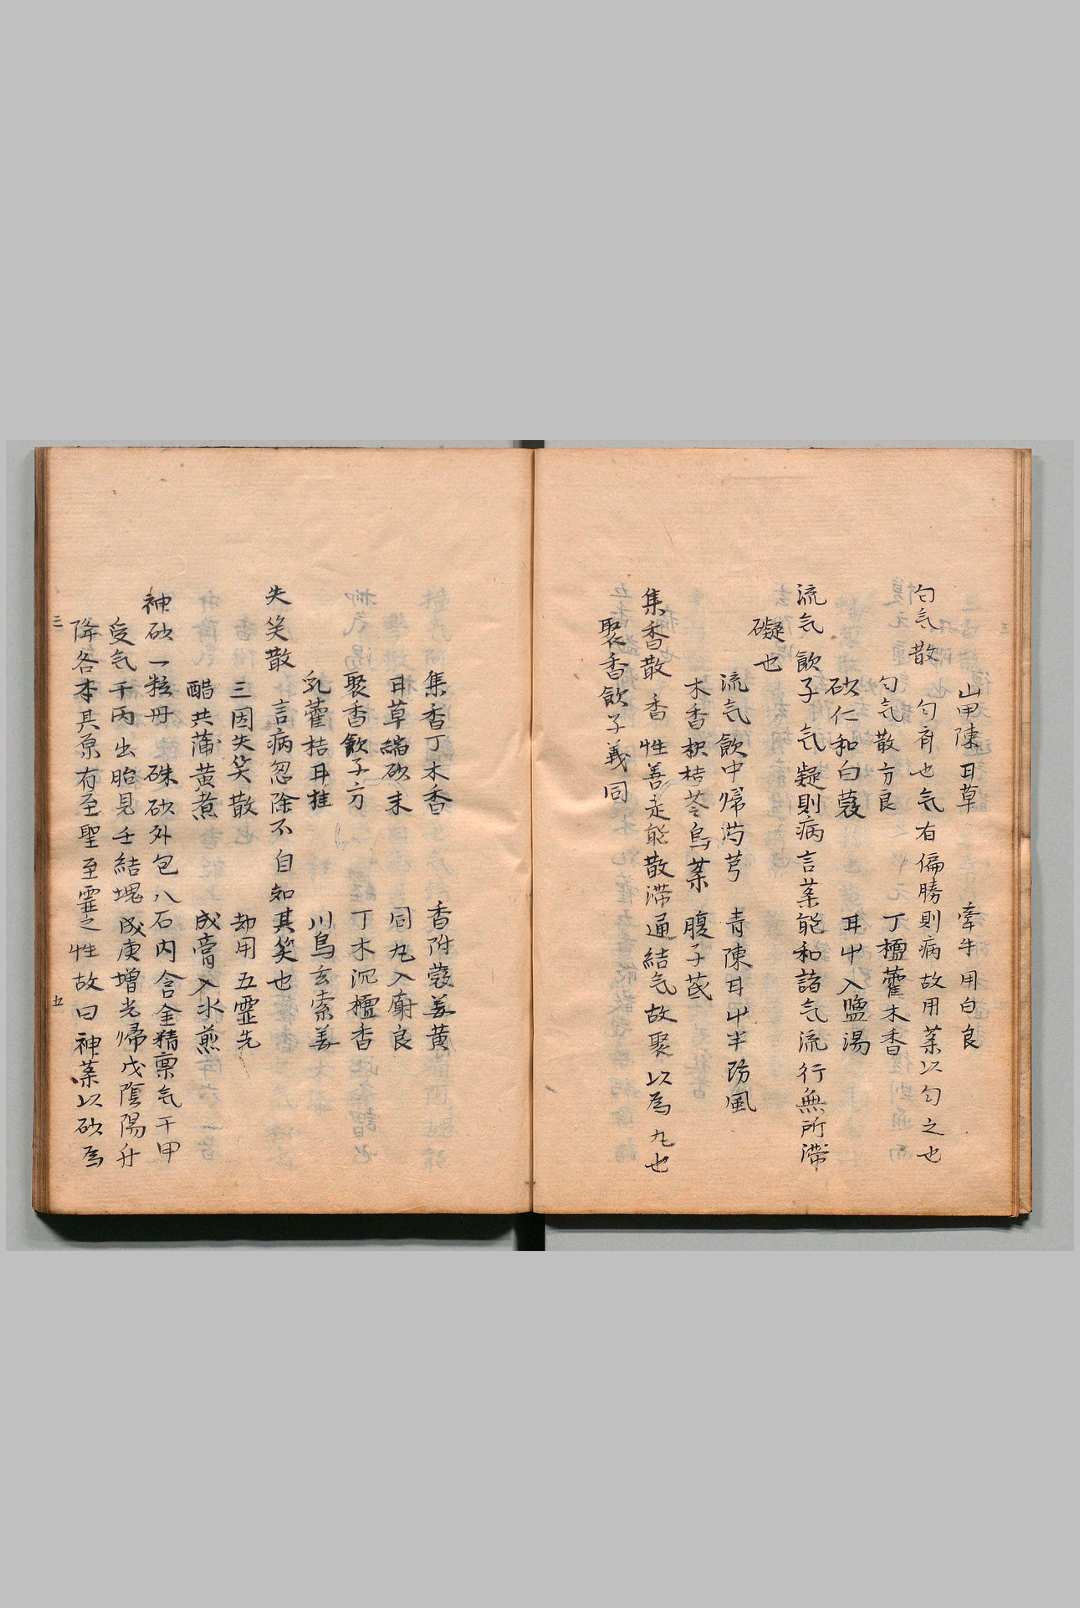 山甲陳耳草　牽牛用白良
勻氣散　勻齊也气有偏勝則病故用薬以勻之也
勻气散方良　丁檀藿木香
砂仁和白蔲　耳屮入鹽湯
流气飮子　气凝則病言薬能和諸气流行無所滯
礙也
流气飮中帰芍芎　青陳耳屮半防風
木香枳桔苓烏薬　腹子芪
集香散　香性善走能散滞通結气故聚以為九也
聚香飮子義同
集香丁木香　香附蔲姜黄
耳草縮砂末　同九入麝良
聚香飮子方　丁木沉檀香
乳藿桔耳桂　川烏玄索姜
失笑散　言病忽除不自知其笑也
三因失笑散　劫用五靈先
醋共蒲黄煮　成膏入水煎
神砂一粒丹　硃砂外包八石内含金精禀气于甲
受气于丙出胎見壬結塊成庚增光帰戊陰陽升
降各本其原有至聖至靈之性故曰神薬以砂為
三
五